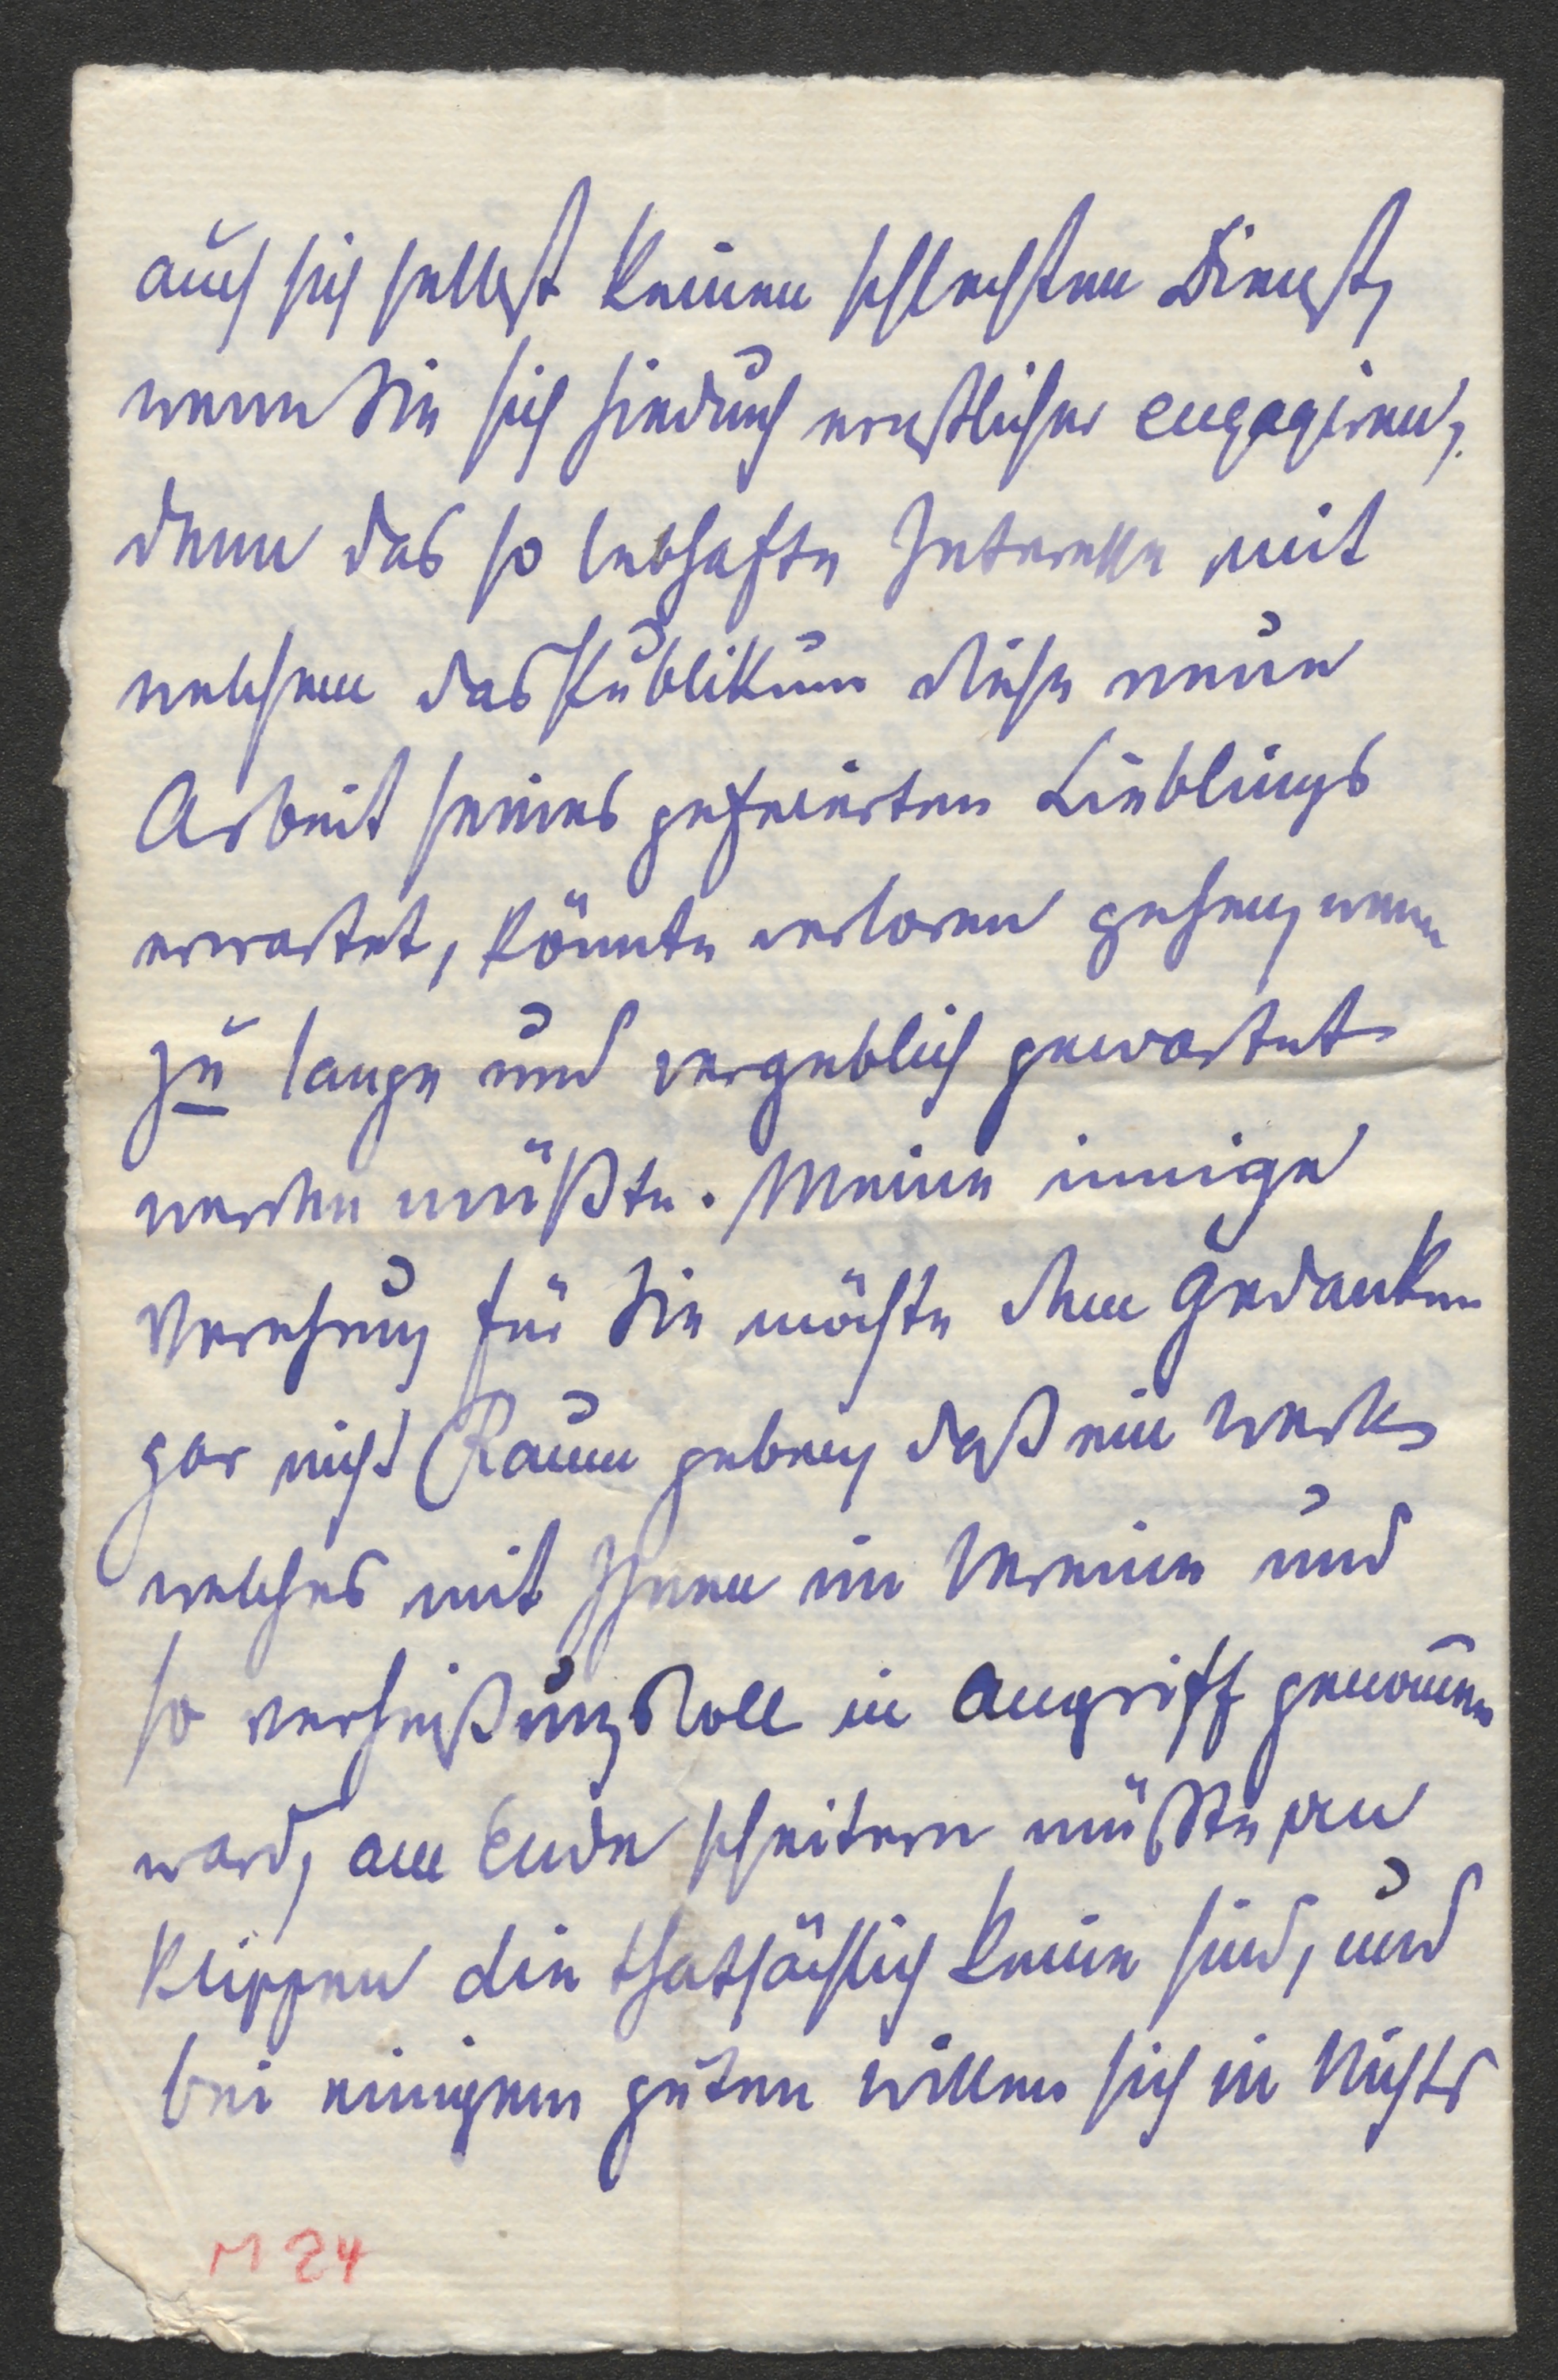 auch sich selbst keinen schlechten Dienst,
wenn Sie sich hiedurch ernstlicher engagiren,
denn das so lebhafte Interesse mit
welchem das Publikum diese neue
Arbeit seines gefeierten Lieblings
erwartet, könnte verloren gehen, wenn
zu lange und vergeblich gewartet
werden müßte. Meine innige
Verehrung für Sie möchte dem Gedanken
gar nicht Raum geben, daß ein Werk,
welches mit Ihnen im Vereine und
so verheißungsvoll in Angriff genommen
ward, am Ende scheitern müßte, an
Klippen die thatsächlich keine sind, und
bei einigem guten Willen sich in Nichts
M 24